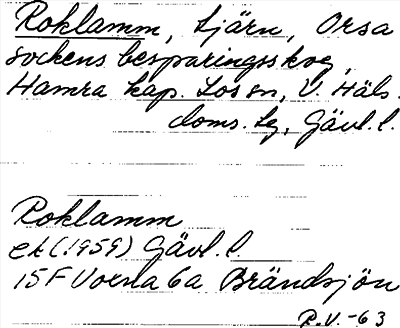 Roklamm, tjärn, Orsa
sockens besparingsskog,
Hamra kap. Los sn, V. Häls.
doms. tg, Gävl. l.
Roklamm
ek (1959) Gävl. l.
15F Voxna 6a Brändsjön
R.V. -63